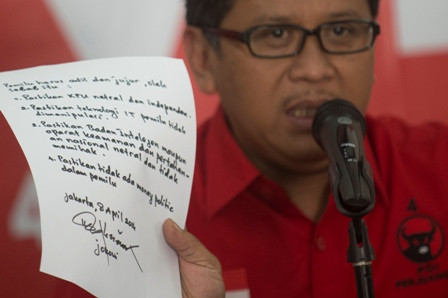 Pemilu harus adil dan jujur, oleh
sebab itu :
1. Pastikan KPU netral dan independen
2. Pastikan teknologi IT pemilu tidak
dimanipulasi
3. Pastikan Badan Intelejen maupun
aparat keamanan dan pertahan-
an nasional netral dan tidak
memihak.
4. Pastikan tidak ada money politic
dalam pemilu
Jakarta, 8 April 2014
jokowi
4